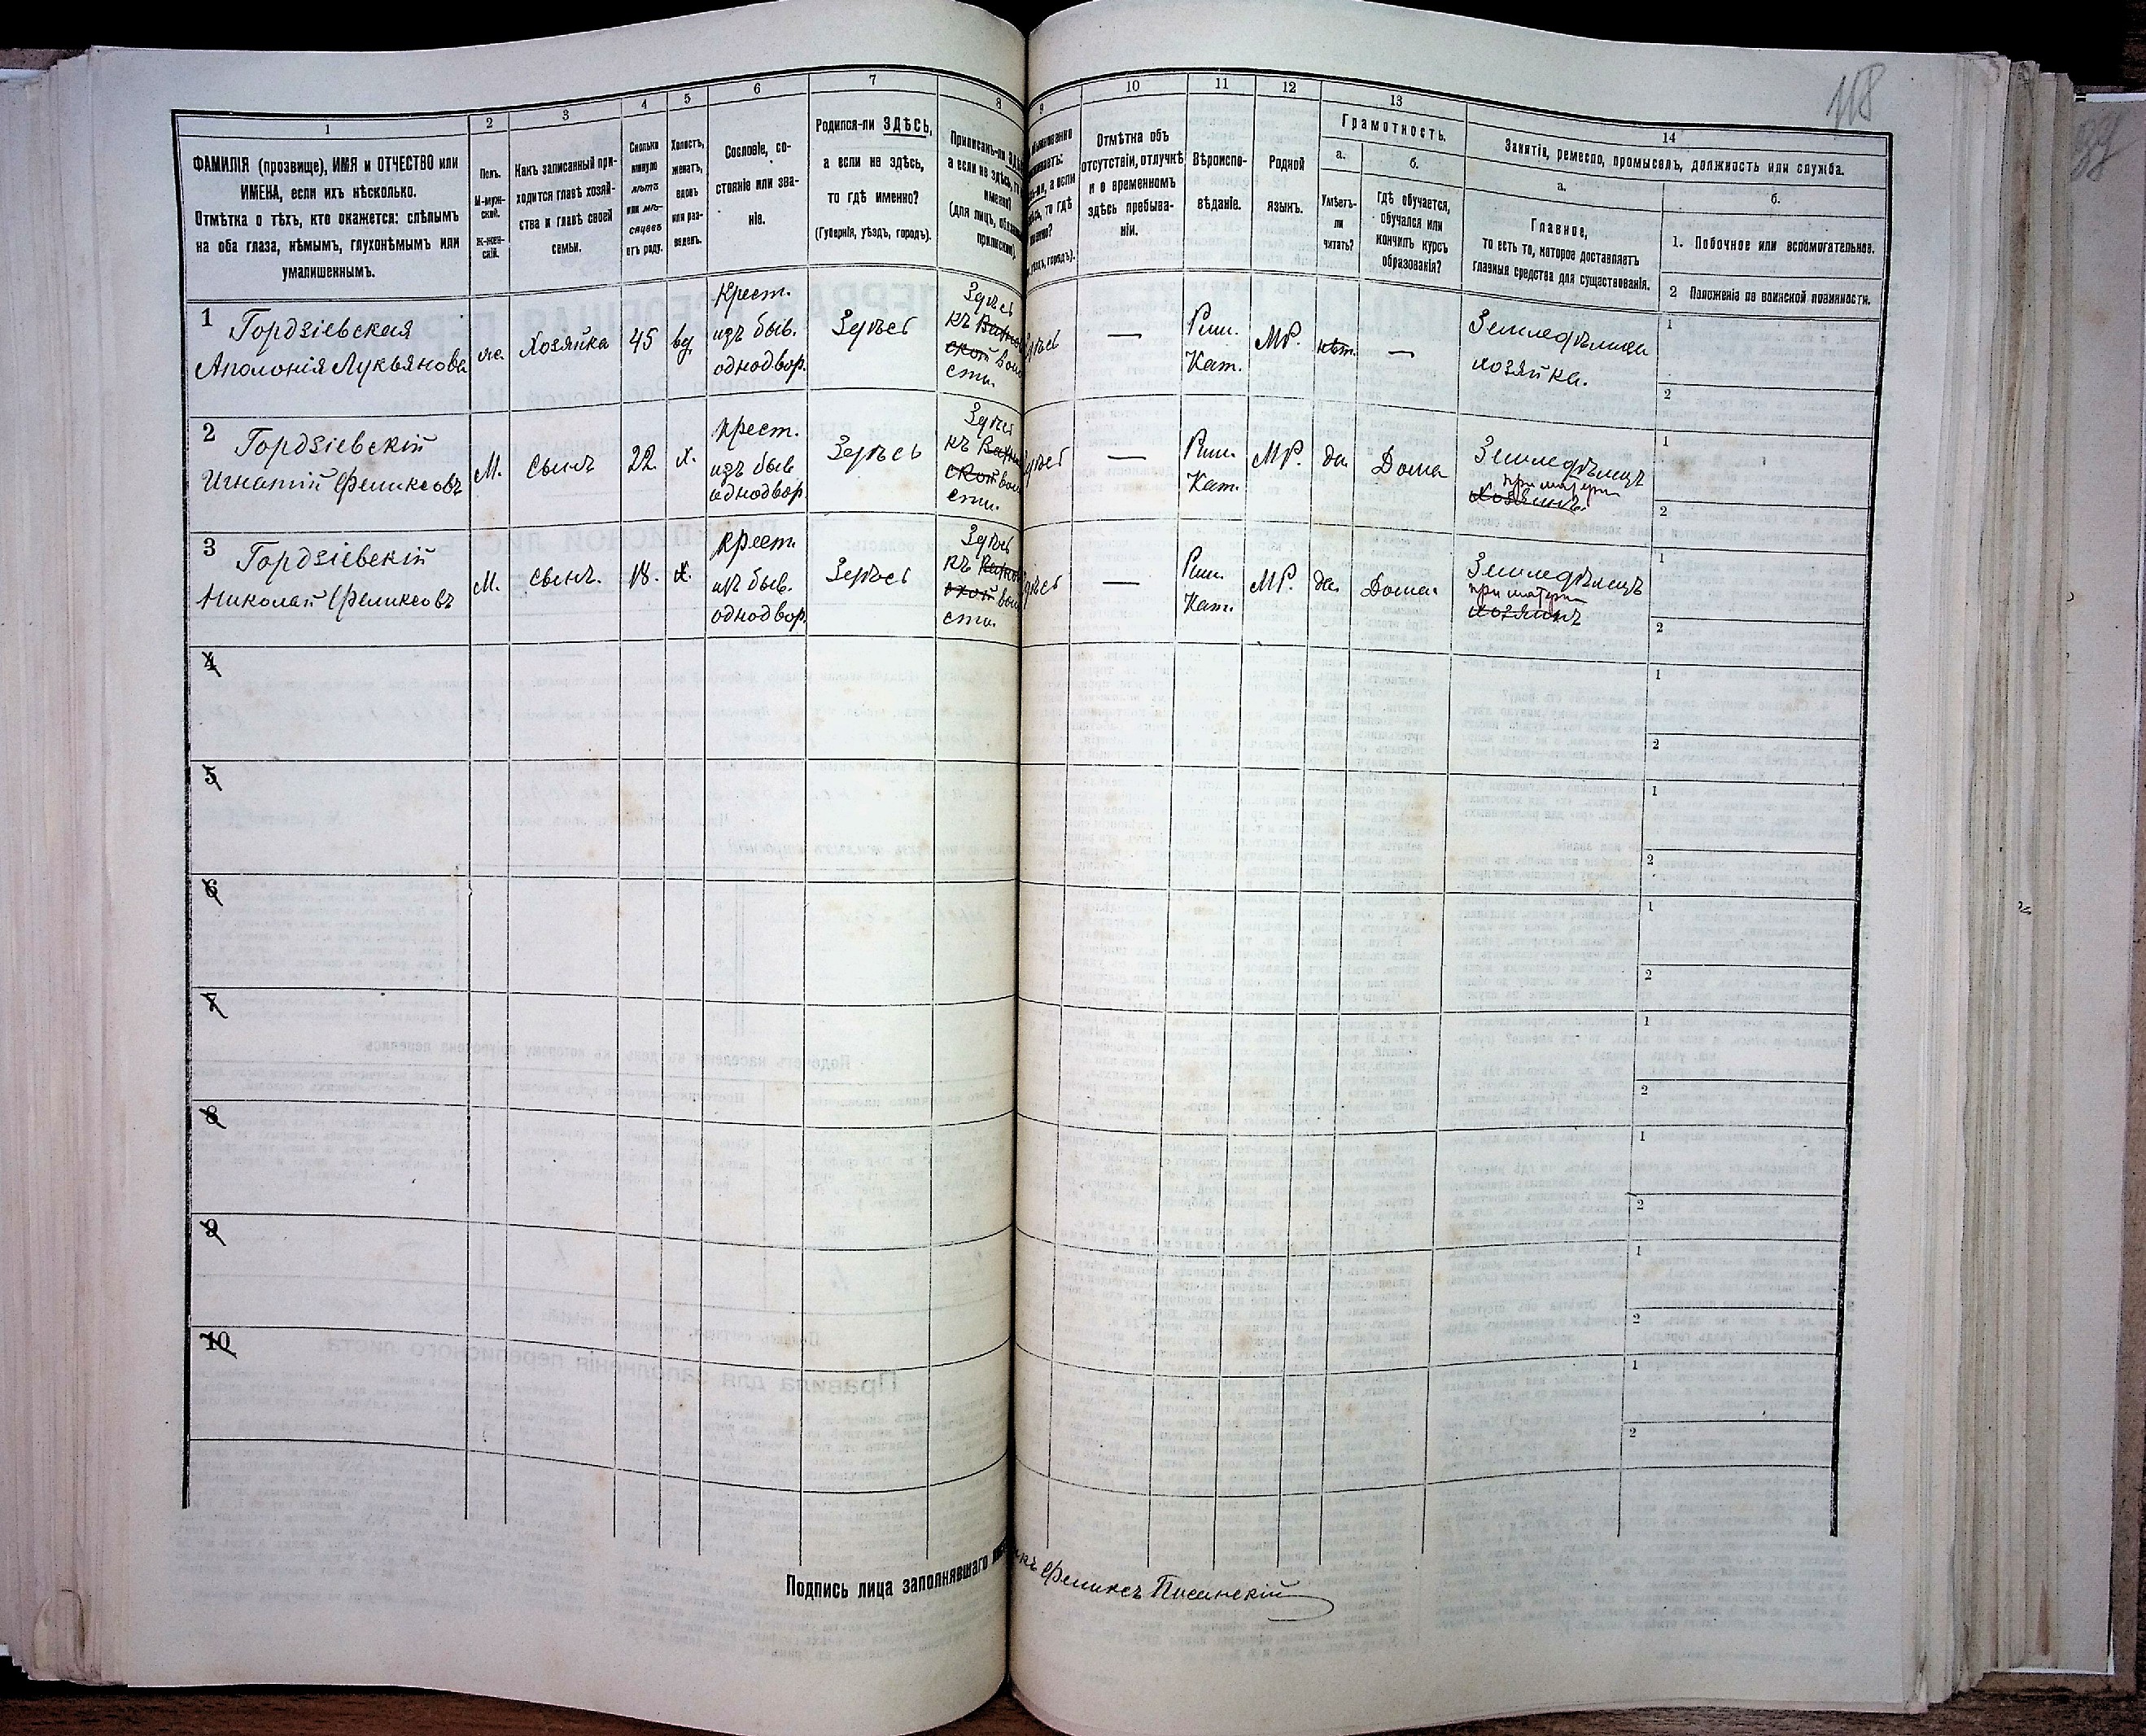 118
1 2 3 4 5 6 7 8 9 10 11 12 13 14
ФАМИЛІЯ (прозвище), ИМЯ и ОТЧЕСТВО или
ИМЕНА, если ихъ нѣсколько.
Отмѣтка о тѣхъ, кто окажется: слѣпымъ
на оба глаза, нѣмымъ, глухонѣмымъ или
умалишеннымъ.
Полъ.
М-муж-
ской.
Ж-жен-
скій.
Какъ записанный при-
ходится главѣ хозяй-
ства и главѣ своей
семьи.
Сколько
минуло
лѣтъ
или мѣ-
сяцевъ
отъ роду.
Холостъ,
женатъ,
вдовъ
или раз-
веденъ.
Сословіе, со-
стояніе или зва-
ніе.
Родился-ли ЗДѢСЬ,
а если не здѣсь,
то гдѣ именно?
(Губернія, уѣздъ, городъ).
Приписанъ-ли
а если не здѣсь,
(для лицъ,
Отмѣтка объ
отсутствіи, отлучкѣ
и о временномъ
здѣсь пребыва-
ніи.
Вѣроиспо-
вѣданіе.
Родной
языкъ.
Грамотность.
а.
Умѣетъ-
ли
читать?
б.
Гдѣ обучается,
обучался или
кончилъ курсъ
образованія?
Занятіе, ремесло, промыселъ, должность или служба.
а.
Главное,
то есть то, которое доставляетъ
главныя средства для существованія.
б.
1. Побочное или вспомогательное.
2 Положеніе по воинской повинности.
1 Гордзіевская
Аполонія Лукьянова
ж. Хозяйка 45 вд
Крест.
изъ быв.
однодвор.
Здѣсь
Здѣсь
къ
ской
сти.
—
Рим.
Кат.
МР. нѣт. —
Земледѣлица
хозяйка.
1
2
2 Гордзіевскій
Игнатій Феликсовъ
М. Сынъ 22 х.
крест.
изъ быв
однодвор
Здѣсь
Здѣсь
къ
ской
сти.
—
Рим.
Кат.
МР. да Дома
Земледѣлецъ
при матери
хозяинъ
1
2
3 Гордзіевскій
Николай Феликсовъ
М. Сынъ. 18. х.
крест.
изъ быв.
однодвор.
Здѣсь
Здѣсь
къ
ской
сти.
—
Рим.
Кат.
МР. да Дома.
Земледѣлецъ
при матери
хозяинъ
1
2
4
1
2
5
1
2
6
1
2
7
1
2
8
1
2
9
1
2
10
1
2
Подпись лица заполнявшаго Феликсъ Писанскій